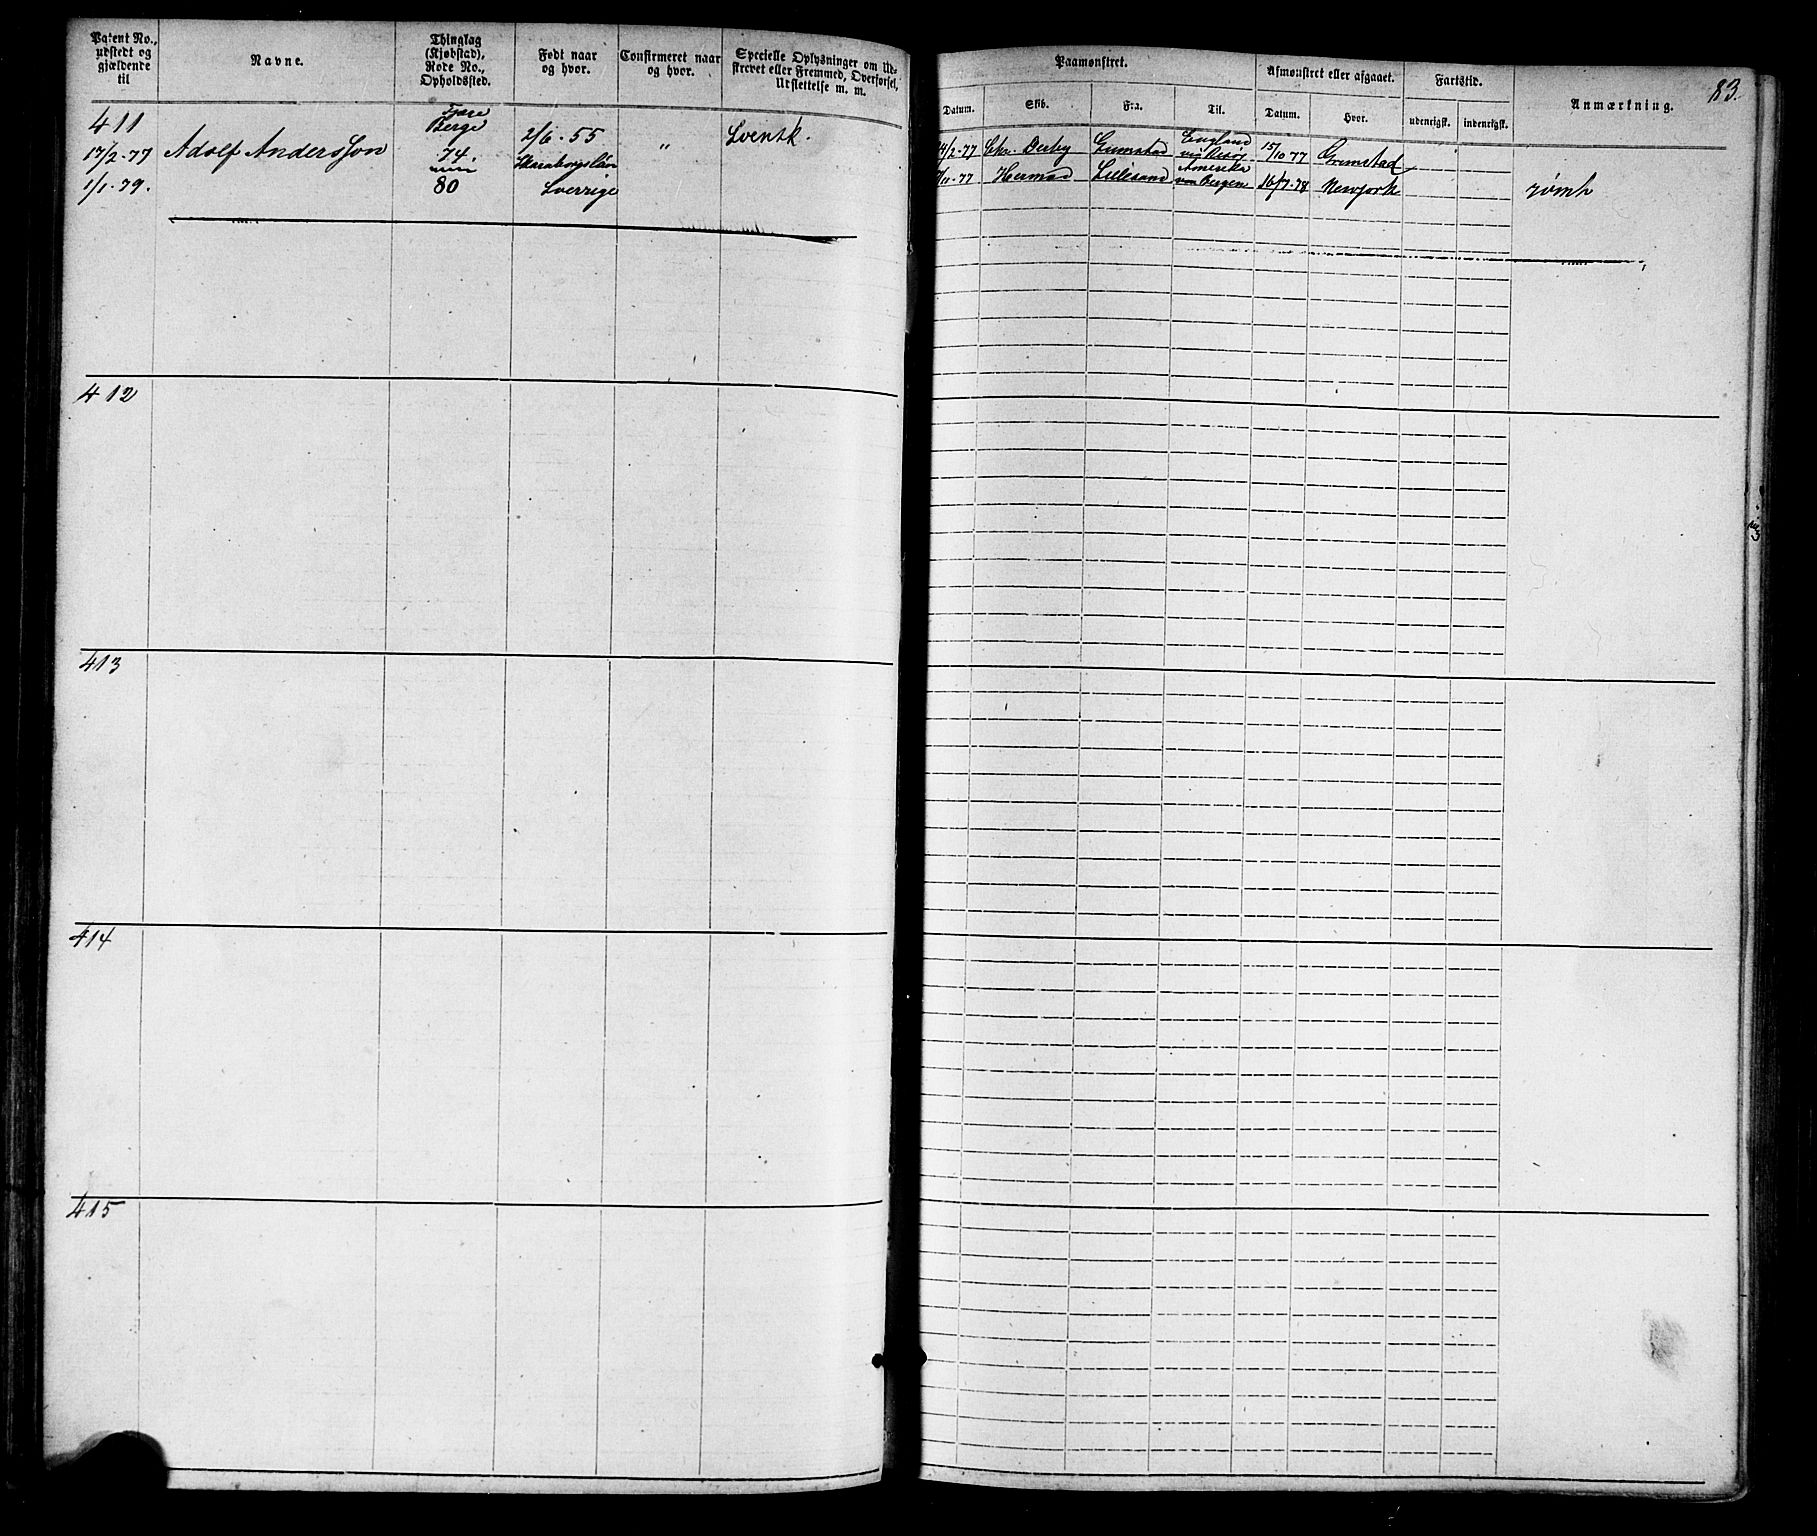 Patent No., udstedt og gjældende til
Navne.
Thinglag (Kjøbstad), Rode No., Opholdssted.
Født naar og hvor.
Confirmeret naar og hvor.
Specielle Oplysninger om Udskrevet eller Fremmed, Overførsel, Udslettelse m. m.
Paamønstret.
Afmønstret eller afgaaet.
Fartstid.
Anmærkning.
83.
Datum.
Skib.
Fra.
Til.
Datum.
Hvor.
udenrigsk.
indenrigsk.
411
17/2-77
1/1-79.
Adolf Andersson
Fjære
Berge
74.
80
2/6-55
Skaraborgslän
Sverrige
"
Svensk.
14/2-77 Derby Grimstad England 15/10 77 Grimstad
77 Hermod Lillesand Amerika Bergen 16/7-78 Newjork
rømt
412
413
414
415